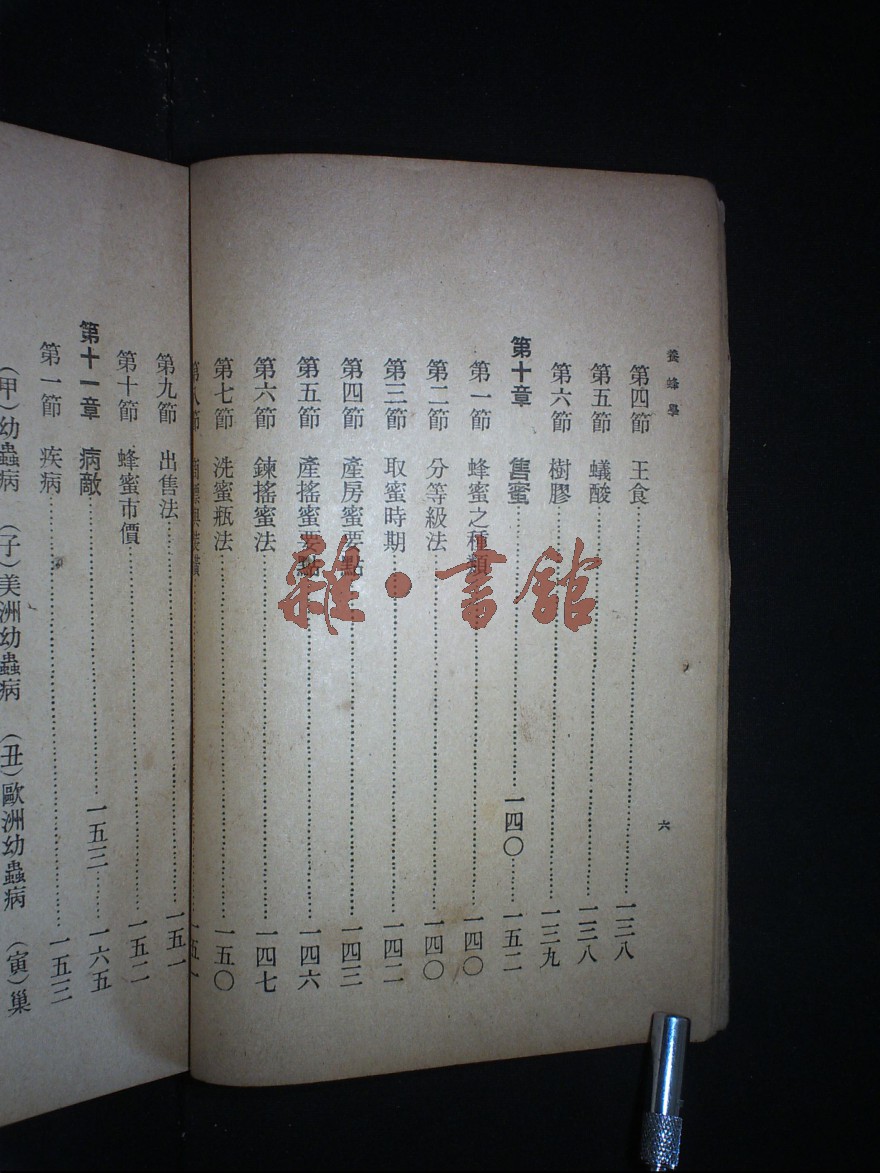 養蜂學
六
第四節 王食……一三八
第五節 蟻酸……一三八
第六節 樹膠……一三九
第十章 售蜜……一四〇……一五二
第一節 蜂蜜之種類……一四〇
第二節 分等級法……一四〇
第三節 取蜜時期……一四二
第四節 產房蜜要點……一四三
第五節 產搖蜜要點……一四六
第六節 鍊搖蜜法……一四七
第七節 洗蜜瓶法……一五〇
第八節 商標與裝璜……一五一
第九節 出售法……一五一
第十節 蜂蜜市價……一五二
第十一章 病敵……一五三……一六五
第一節 疾病……一五三
(甲)幼蟲病 (子)美洲幼蟲病 (丑)歐洲幼蟲病 (寅)巢
雜·書館